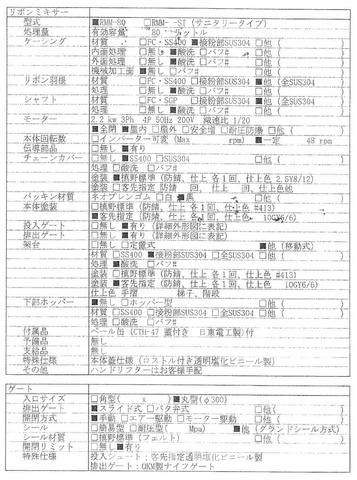 リボンミキサー
型式 ■RMM-80 □RMM- -SI (サニタリータイプ)
処理量 有効容量 80 リットル
ケーシング 材質 □FC・SS400 ■接粉部SUS304 □他(
内面処理 □無し ■酸洗 □バフ# □他(
外面処理 □無し ■酸洗 □バフ# □他(
機械加工面 ■無し □バフ#
リボン羽根 材質 □FC・SS400 □接粉部SUS304 ■他(全SUS304
処理 □無し ■酸洗 □バフ# □他(
シャフト 材質 □FC・SGP □接粉部SUS304 ■他(全SUS304
処理 □無し ■酸洗 □バフ# □他(
モーター 2.2 kw 3Ph 4P 50Hz 200V 減速比 1/20
■全閉 ■屋内 □屋外 □安全増 □耐圧防爆 □他(
本体回転数 □インバーター可変 (Max rpm) ■一定 48 rpm
伝導部品 □無し ■有り
チェーンカバー □無し ■SS400 □SUS304 □他(
処理 □酸洗 □バフ#
塗装 ■槙野標準 (防錆、仕上 各1回、仕上色 2.5Y8/12)
□客先指定 防錆 回、仕上 回、仕上色他
パッキン材質 ネオプレンゴム □白 ■黒 □他(
本体塗装 □槙野標準 (防錆、仕上 各1回、仕上色 #413)
■客先指定 (防錆、仕上 各1回、仕上色 10GY6/6)
投入ゲート □無し ■有り (詳細外形図に表記)
排出ゲート □無し ■有り (詳細外形図に表記)
架台 □無し □定置式 ■他 (移動式)
材質 □SS400 ■接粉部SUS304 □全SUS304 □他(
処理 ■酸洗 □バフ#
塗装 □槙野標準 (防錆、仕上 各1回、仕上色 #413)
塗装 ■客先指定 (防錆、仕上 各1回、仕上色 10GY6/6)
仕上色 手摺 梯子、階段
下部ホッパー ■無し □ホッパー型 □他(
材質 □SS400 □接粉部SUS304 □全SUS304 □他(
処理 □酸洗 □バフ#
付属品 ベール缶 (CTH-47 蓋付き 日東電工製)付
予備品 無し
支給品 無し
特殊仕様 本体蓋仕様 (ロストル付き透明塩化ビニール製)
その他 ハンドリフターはお客様手配
ゲート
入口サイズ □角型( x ) ■丸型(φ300)
排出ゲート ■スライド式 □バタ弁式 □他(
開閉方式 ■手動 □エアー駆動 □モーター駆動 □他(
シール □簡易型 □耐圧型( Mpa) ■他(グランドシール方式)
シール材質 □槙野標準 (フェルト) □他(
開閉リミット □無し ■有り
特殊仕様 投入シュート:客先指定透明塩化ビニール製
排出ゲート:OKM製ナイフゲート